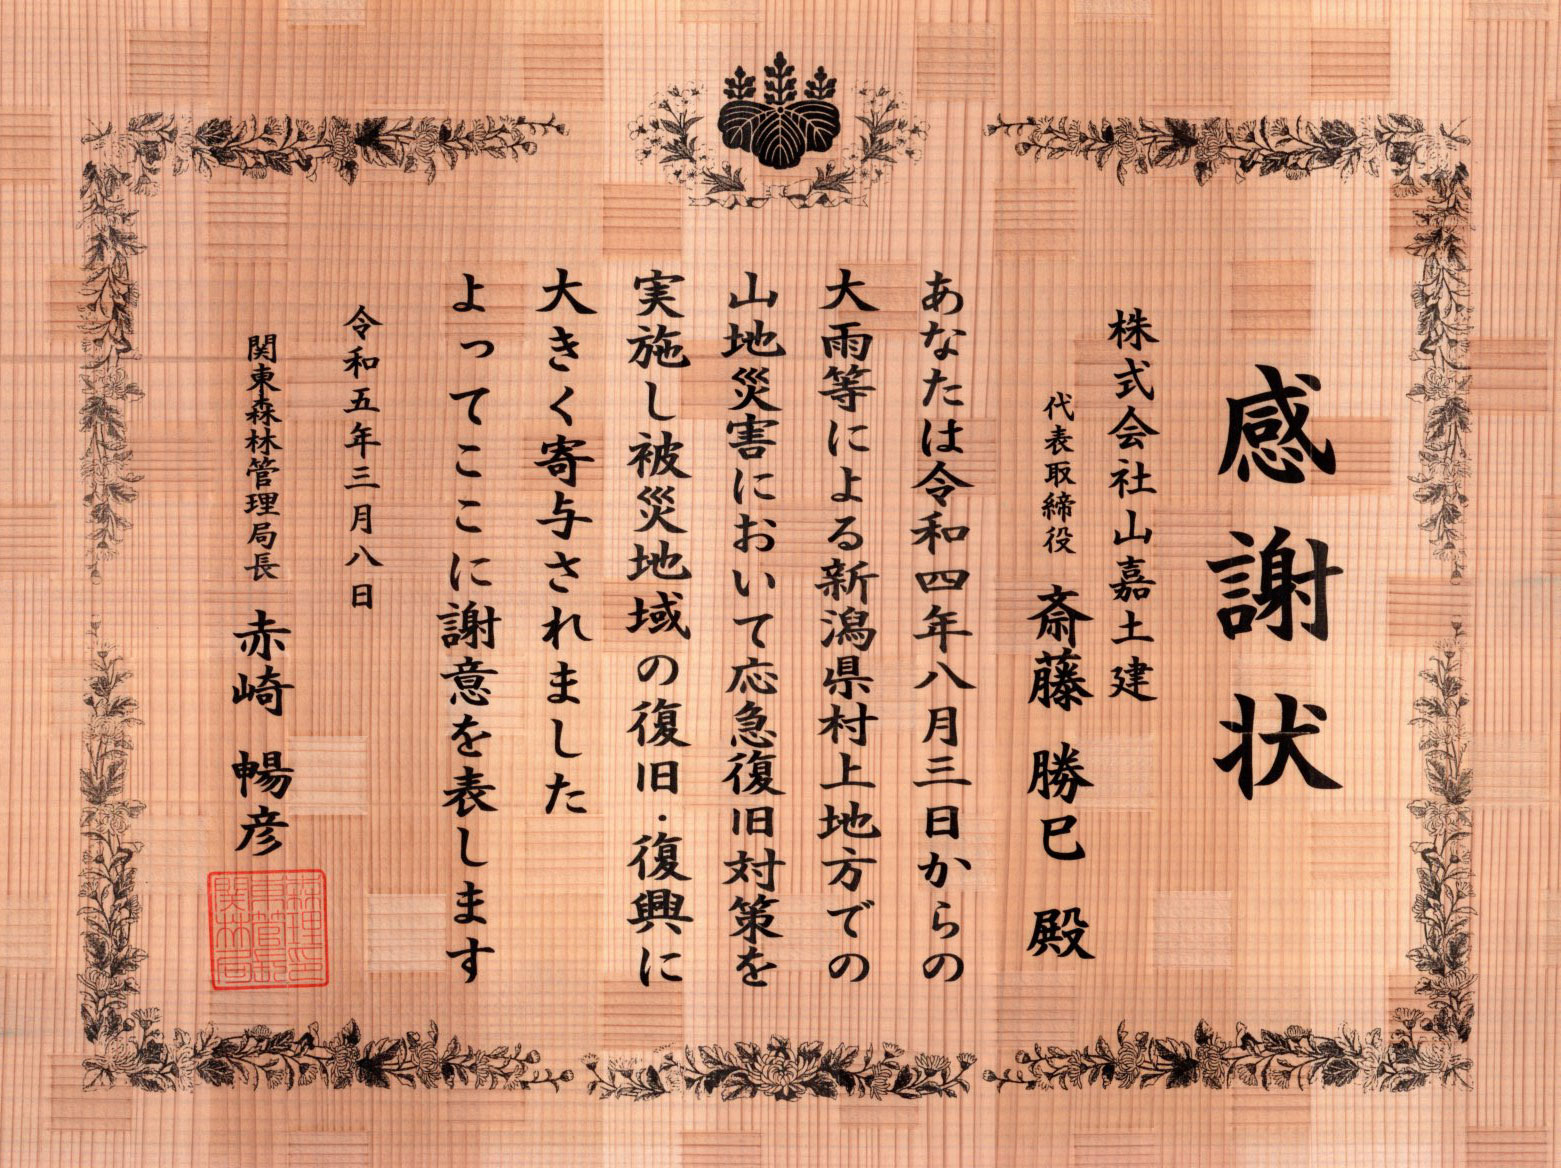 感謝状
株式会社山嘉土建
代表取締役 斎藤 勝巳 殿
あなたは令和四年八月三日からの
大雨等による新潟県村上地方での
山地災害において応急復旧対策を
実施し被災地域の復旧・復興に
大きく寄与されました
よってここに謝意を表します
令和五年三月八日
関東森林管理局長 赤崎 暢彦